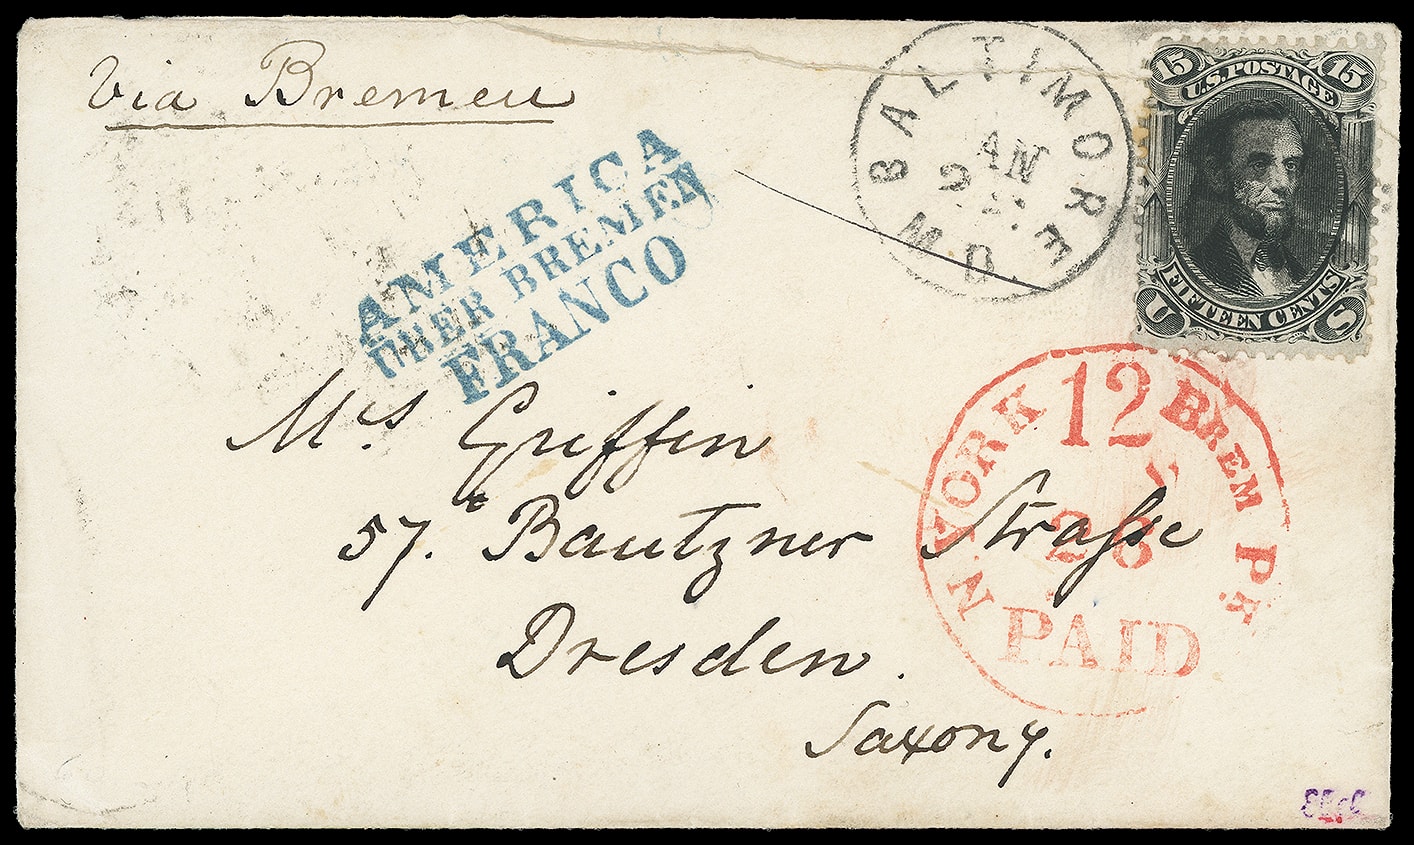 via Bremen
BALTIMORE
MD.
AN
15 U.S. POSTAGE 15
FIFTEEN CENTS
U S
AMERICA
UBER BREMEN
FRANCO
N. YORK 12 BREM PK
PAID
Mrs Griffin
57. Bautzner Strasse
Dresden.
Saxony.